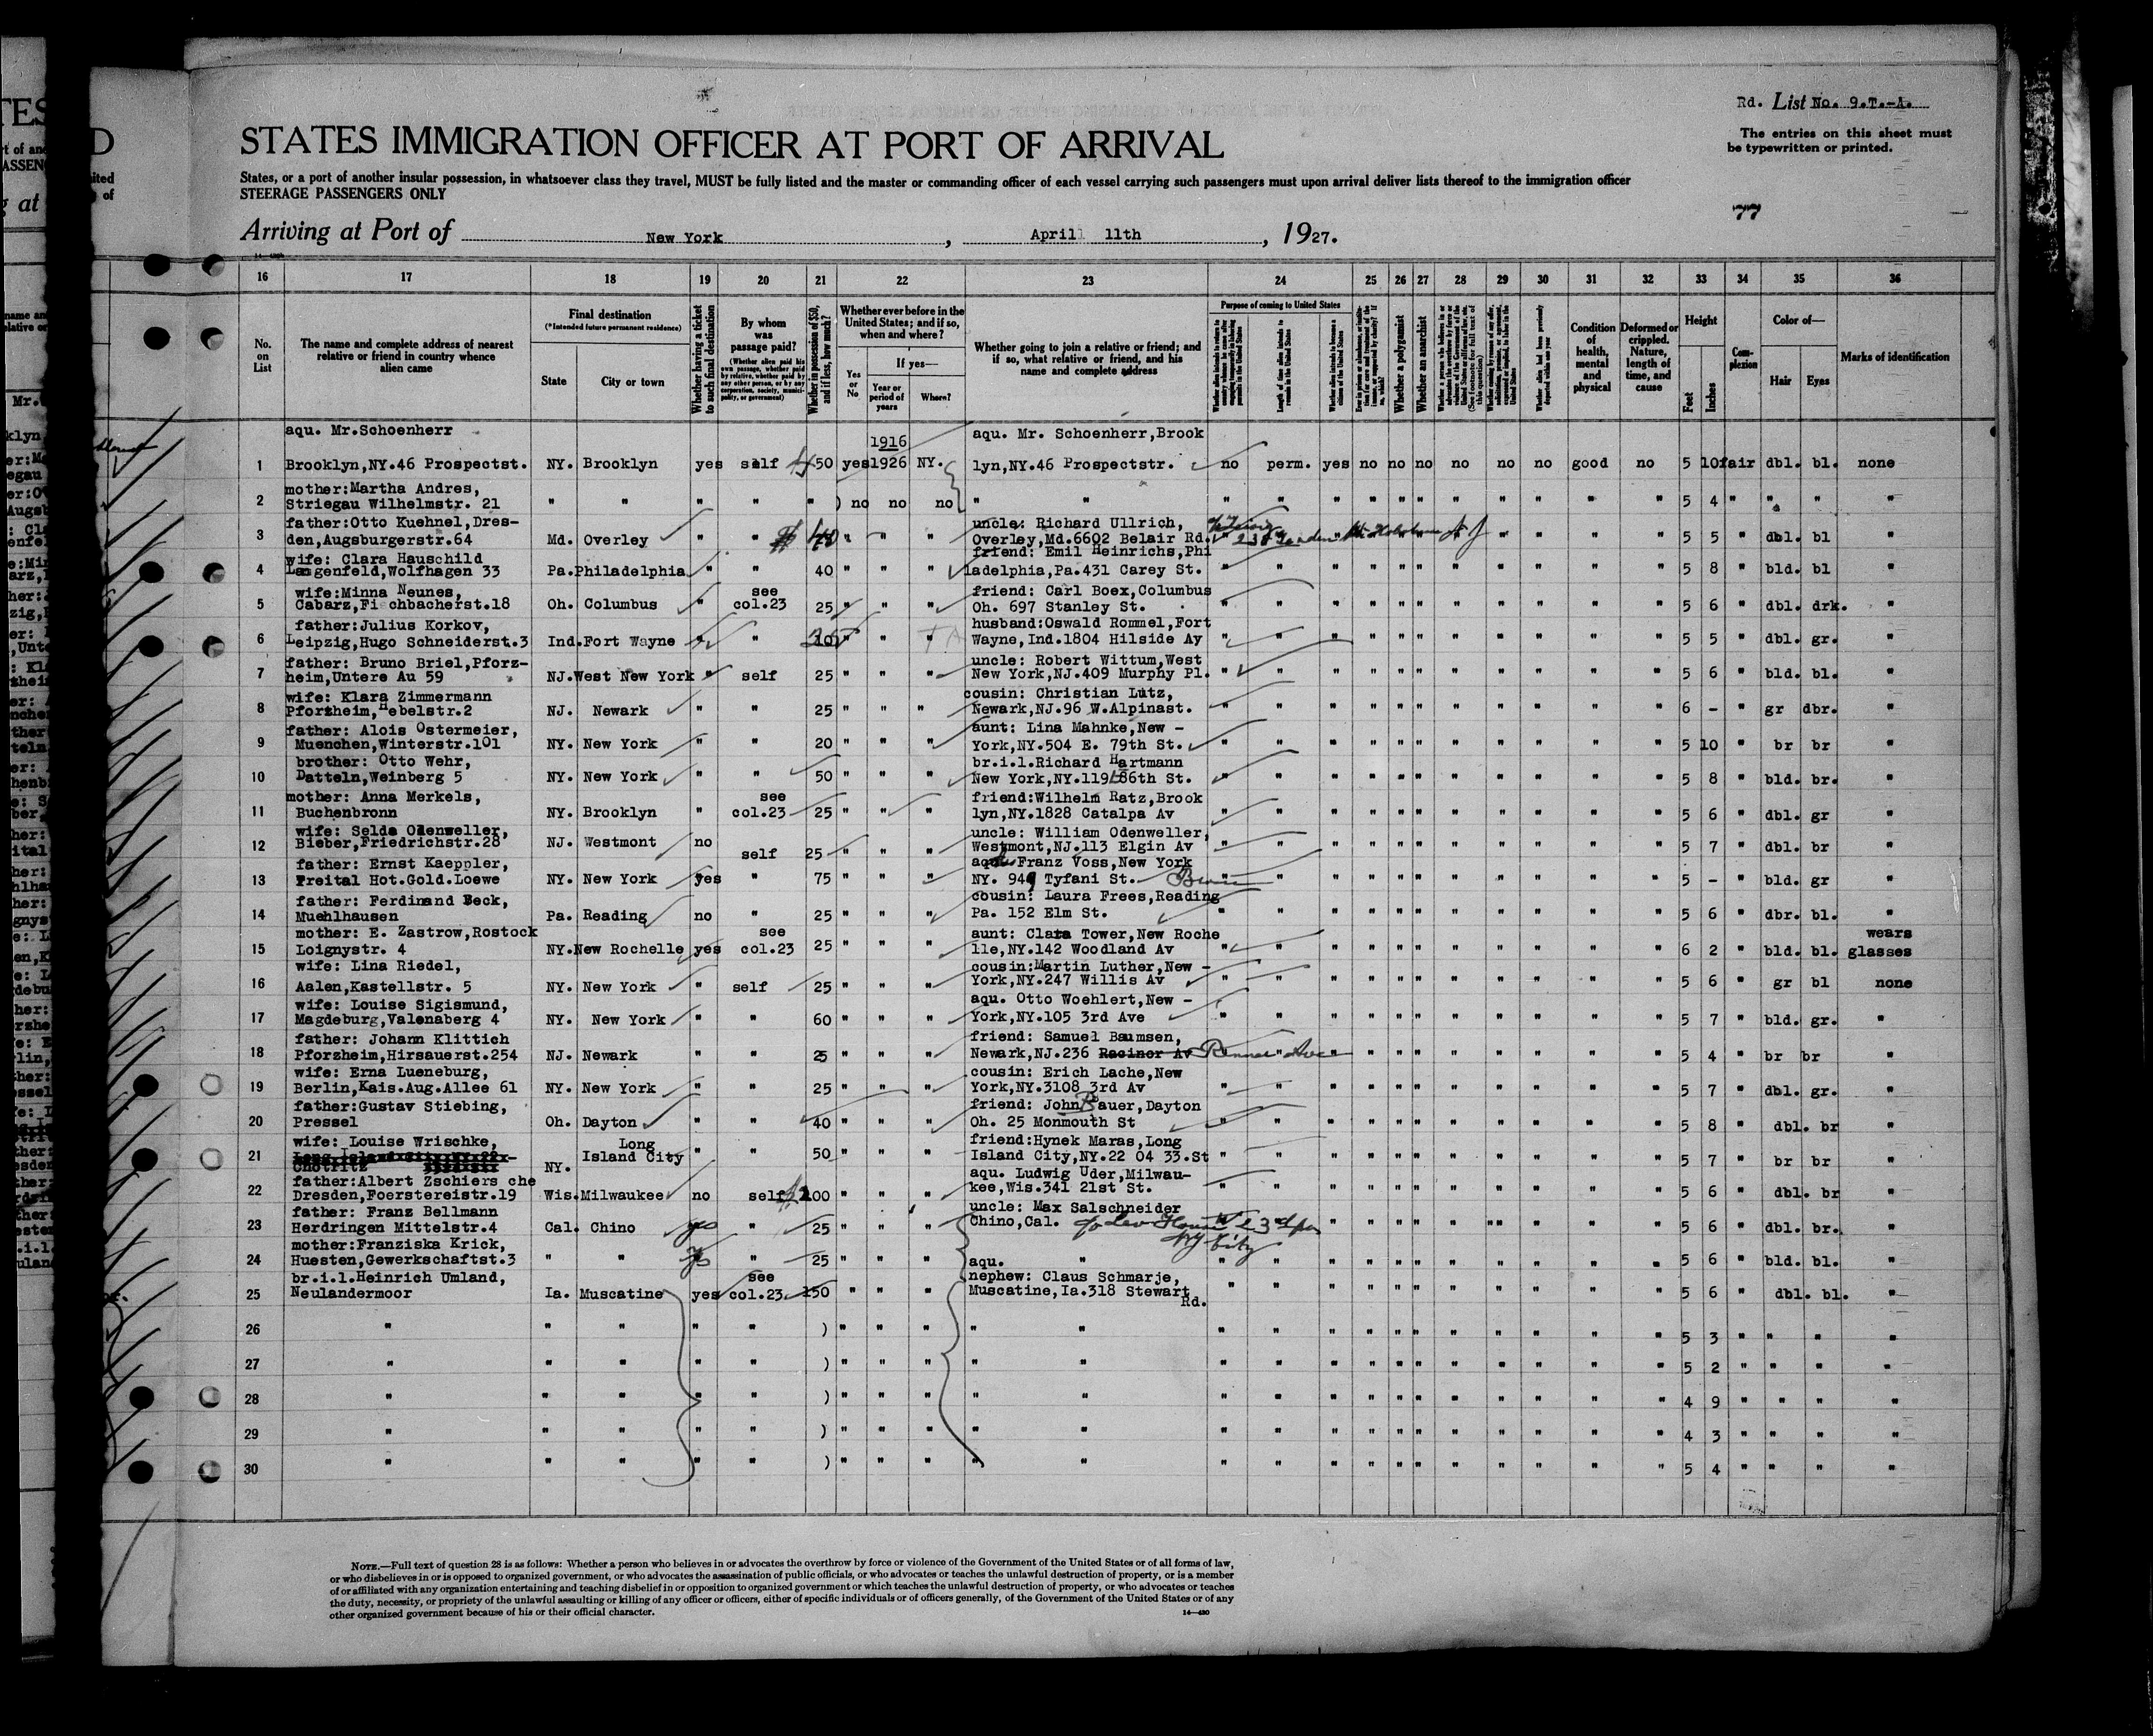 Rd. List No. 9.T.-A.
The entries on this sheet must
be typewritten or printed.
STATES IMMIGRATION OFFICER AT PORT OF ARRIVAL
States, or a port of another insular possession, in whatsoever class they travel, MUST be fully listed and the master or commanding officer of each vessel carrying such passengers must upon arrival deliver lists thereof to the immigration officer
STEERAGE PASSENGERS ONLY
77
Arriving at Port of New York, April 11th, 1927.
16 17 18 19 20 21 22 23 24 25 26 27 28 29 30 31 32 33 34 35 36
No. on List
The name and complete address of nearest relative or friend in country whence alien came
Final destination
(*Intended future permanent residence)
State City or town
Whether having a ticket to such final destination
By whom was passage paid?
(Whether alien paid his own passage, whether paid by relative, whether paid by any other person, or by any corporation, society, municipality, or government)
Whether in possession of $50, and if less, how much?
Whether ever before in the United States; and if so, when and where?
Yes or No
If yes—
Year or period of years
Where?
Whether going to join a relative or friend; and if so, what relative or friend, and his name and complete address
Purpose of coming to United States
Length of time alien intends to remain in the United States
Whether a polygamist
Whether an anarchist
Condition of health, mental and physical
Deformed or crippled. Nature, length of time, and cause
Height
Feet Inches
Complexion
Color of—
Hair Eyes
Marks of identification
aqu. Mr.Schoenherr 1916 aqu. Mr. Schoenherr,Brook
1 Brooklyn,NY.46 Prospectst. NY. Brooklyn yes self 50 yes 1926 NY. lyn,NY.46 Prospectstr. no perm. yes no no no no no no good no 5 10 fair dbl. bl. none
mother:Martha Andres,
2 Striegau Wilhelmstr. 21 " " " " " ) no no no " " " " " " " " " " " " " 5 4 " " " "
father:Otto Kuehnel,Dres- uncle: Richard Ullrich,
3 den,Augsburgerstr.64 Md. Overley " " 40 " " " Overley,Md.6602 Belair Rd. 5 5 " dbl. bl "
wife: Clara Hauschild friend: Emil Heinrichs,Phi
4 Langenfeld,Wolfhagen 33 Pa. Philadelphia " " 40 " " " ladelphia,Pa.431 Carey St. " " " " " " " " " " " 5 8 " bld. bl "
wife:Minna Neunes, see friend: Carl Boex,Columbus
5 Cabarz,Fischbacherst.18 Oh. Columbus " col.23 25 " " " Oh. 697 Stanley St. " " " " " " " " " " " 5 6 " dbl. drk. "
father:Julius Korkov, husband:Oswald Rommel,Fort
6 Leipzig,Hugo Schneiderst.3 Ind. Fort Wayne " " " " " Wayne,Ind.1804 Hilside Ay " " " " " " " " " " " 5 5 " dbl. gr. "
father: Bruno Briel,Pforz- uncle: Robert Wittum,West
7 heim,Untere Au 59 NJ. West New York " self 25 " " " New York,NJ.409 Murphy Pl. " " " " " " " " " " " 5 6 " bld. bl. "
wife: Klara Zimmermann cousin: Christian Lutz,
8 Pforzheim,Hebelstr.2 NJ. Newark " " 25 " " " Newark,NJ.96 W.Alpinast. " " " " " " " " " " " 6 - " gr dbr. "
father: Alois Ostermeier, aunt: Lina Mahnke,New -
9 Muenchen,Winterstr.101 NY. New York " " 20 " " " York,NY.504 E. 79th St. " " " " " " " " " " " 5 10 " br br "
brother: Otto Wehr, br.i.l.Richard Hartmann
10 Datteln,Weinberg 5 NY. New York " " 50 " " " New York,NY.119 86th St. " " " " " " " " " " " 5 8 " bld. br. "
mother: Anna Merkels, see friend:Wilhelm Ratz,Brook
11 Buchenbronn NY. Brooklyn " col.23 25 " " " lyn,NY.1828 Catalpa Av " " " " " " " " " " " 5 6 " dbl. gr "
wife: Selda Odenweller, uncle: William Odenweller,
12 Bieber,Friedrichstr.28 NJ. Westmont no self 25 " " " Westmont,NJ.113 Elgin Av " " " " " " " " " " " 5 7 " dbl. br "
father: Ernst Kaeppler, Franz Voss,New York
13 Freital Hot.Gold.Loewe NY. New York yes " 75 " " " NY. 949 Tyfani St. Bronx " " " " " " " " " " " 5 - " bld. gr "
father: Ferdinand Beck, cousin: Laura Frees,Reading
14 Muehlhausen Pa. Reading no " 25 " " " Pa. 152 Elm St. " " " " " " " " " " " 5 6 " dbr. bl. "
mother: E. Zastrow,Rostock see aunt: Clara Tower,New Roche wears
15 Loignystr. 4 NY. New Rochelle yes col.23 25 " " " lle,NY.142 Woodland Av " " " " " " " " " " " 6 2 " bld. bl. glasses
wife: Lina Riedel, cousin:Martin Luther,New -
16 Aalen,Kastellstr. 5 NY. New York " self 25 " " " York,NY.247 Willis Av " " " " " " " " " " " 5 6 " gr bl none
wife: Louise Sigismund, aqu. Otto Woehlert,New -
17 Magdeburg,Valenaberg 4 NY. New York " " 60 " " " York,NY.105 3rd Ave " " " " " " " " " " " 5 7 " bld. gr. "
father: Johann Klittich friend: Samuel Baumsen,
18 Pforzheim,Hirsauerst.254 NJ. Newark " " 25 " " " Newark,NJ.236 Raciner Av " " " " " " " " " 5 4 " br br "
wife: Erna Lueneburg, cousin: Erich Lache,New
19 Berlin,Kais.Aug.Allee 61 NY. New York " " 25 " " " York,NY.3108 3rd Av " " " " " " " " " " " 5 7 " dbl. gr. "
father:Gustav Stiebing, friend: John Bauer,Dayton
20 Pressel Oh. Dayton " " 40 " " " Oh. 25 Monmouth St " " " " " " " " " " " 5 8 " dbl. br "
wife: Louise Wrischke, Long friend:Hynek Maras,Long
21 Chotritz NY. Island City " " 50 " " " Island City,NY.22 04 33.St " " " " " " " " " " " 5 7 " br br "
father:Albert Zschiers che aqu. Ludwig Uder,Milwau-
22 Dresden,Foerstereistr.19 Wis. Milwaukee no self 200 " " " kee,Wis.341 21st St. " " " " " " " " " " " 5 6 " dbl. br "
father: Franz Bellmann uncle: Max Salschneider
23 Herdringen Mittelstr.4 Cal. Chino yes " 25 " " " Chino,Cal. c/o Leo House W 23 NY City " " " " " " " " 5 6 " dbl. br. "
mother:Franziska Krick,
24 Huesten,Gewerkschaftst.3 " " " 25 " " " aqu. " " " " " " " " " " " 5 6 " bld. bl. "
br.i.l.Heinrich Umland, see nephew: Claus Schmarje,
25 Neulandermoor Ia. Muscatine yes col.23 150 " " " Muscatine,Ia.318 Stewart Rd. " " " " " " " " " " " 5 6 " dbl. bl. "
26 " " " " " ) " " " " " " " " " " " " " " " " 5 3 " " " "
27 " " " " " ) " " " " " " " " " " " " " " " " 5 2 " " " "
28 " " " " " ) " " " " " " " " " " " " " " " " 4 9 " " " "
29 " " " " " ) " " " " " " " " " " " " " " " " 4 3 " " " "
30 " " " " " ) " " " " " " " " " " " " " " " " 5 4 " " " "
NOTE.—Full text of question 28 is as follows: Whether a person who believes in or advocates the overthrow by force or violence of the Government of the United States or of all forms of law,
or who disbelieves in or is opposed to organized government, or who advocates the assassination of public officials, or who advocates or teaches the unlawful destruction of property, or is a member
of or affiliated with any organization entertaining and teaching disbelief in or opposition to organized government or which teaches the unlawful destruction of property, or who advocates or teaches
the duty, necessity, or propriety of the unlawful assaulting or killing of any officer or officers, either of specific individuals or of officers generally, of the Government of the United States or of any
other organized government because of his or their official character.
14—430